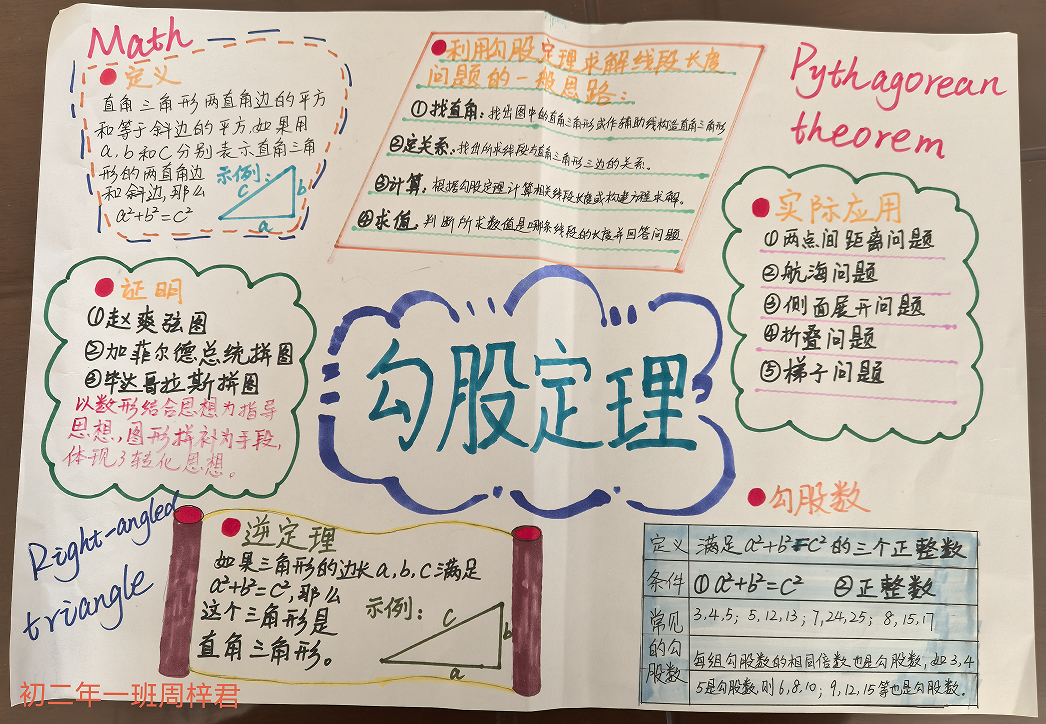 Math
定义
直角三角形两直角边的平方
和等于斜边的平方.如果用
a,b和c分别表示直角三角
形的两直角边
和斜边,那么
a²+b²=c²
示例:
c
b
a
利用勾股定理求解线段长度
问题的一般思路:
①找直角:找出图中的直角三角形或作辅助线构造直角三角形
②定关系:找出所求线段为直角三角形三边的关系。
③计算:根据勾股定理计算相关线段长度或构建方程求解。
④求值:判断所求数值是哪条线段的长度并回答问题
Pythagorean
theorem
证明
①赵爽弦图
②加菲尔德总统拼图
③毕达哥拉斯拼图
以数形结合思想为指导
思想,图形拼补为手段,
体现了转化思想。
勾股定理
实际应用
①两点间距离问题
②航海问题
③侧面展开问题
④折叠问题
⑤梯子问题
Right-angled
triangle
逆定理
如果三角形的边长a,b,c满足
a²+b²=c²,那么
这个三角形是
直角三角形。
示例:
c
b
a
勾股数
定义 满足a²+b²=c²的三个正整数
条件 ①a²+b²=c² ②正整数
常见的勾股数 3,4,5; 5,12,13; 7,24,25; 8,15,17
每组勾股数的相同倍数也是勾股数,如3,4
5是勾股数,则6,8,10; 9,12,15等也是勾股数.
初二年一班周梓君